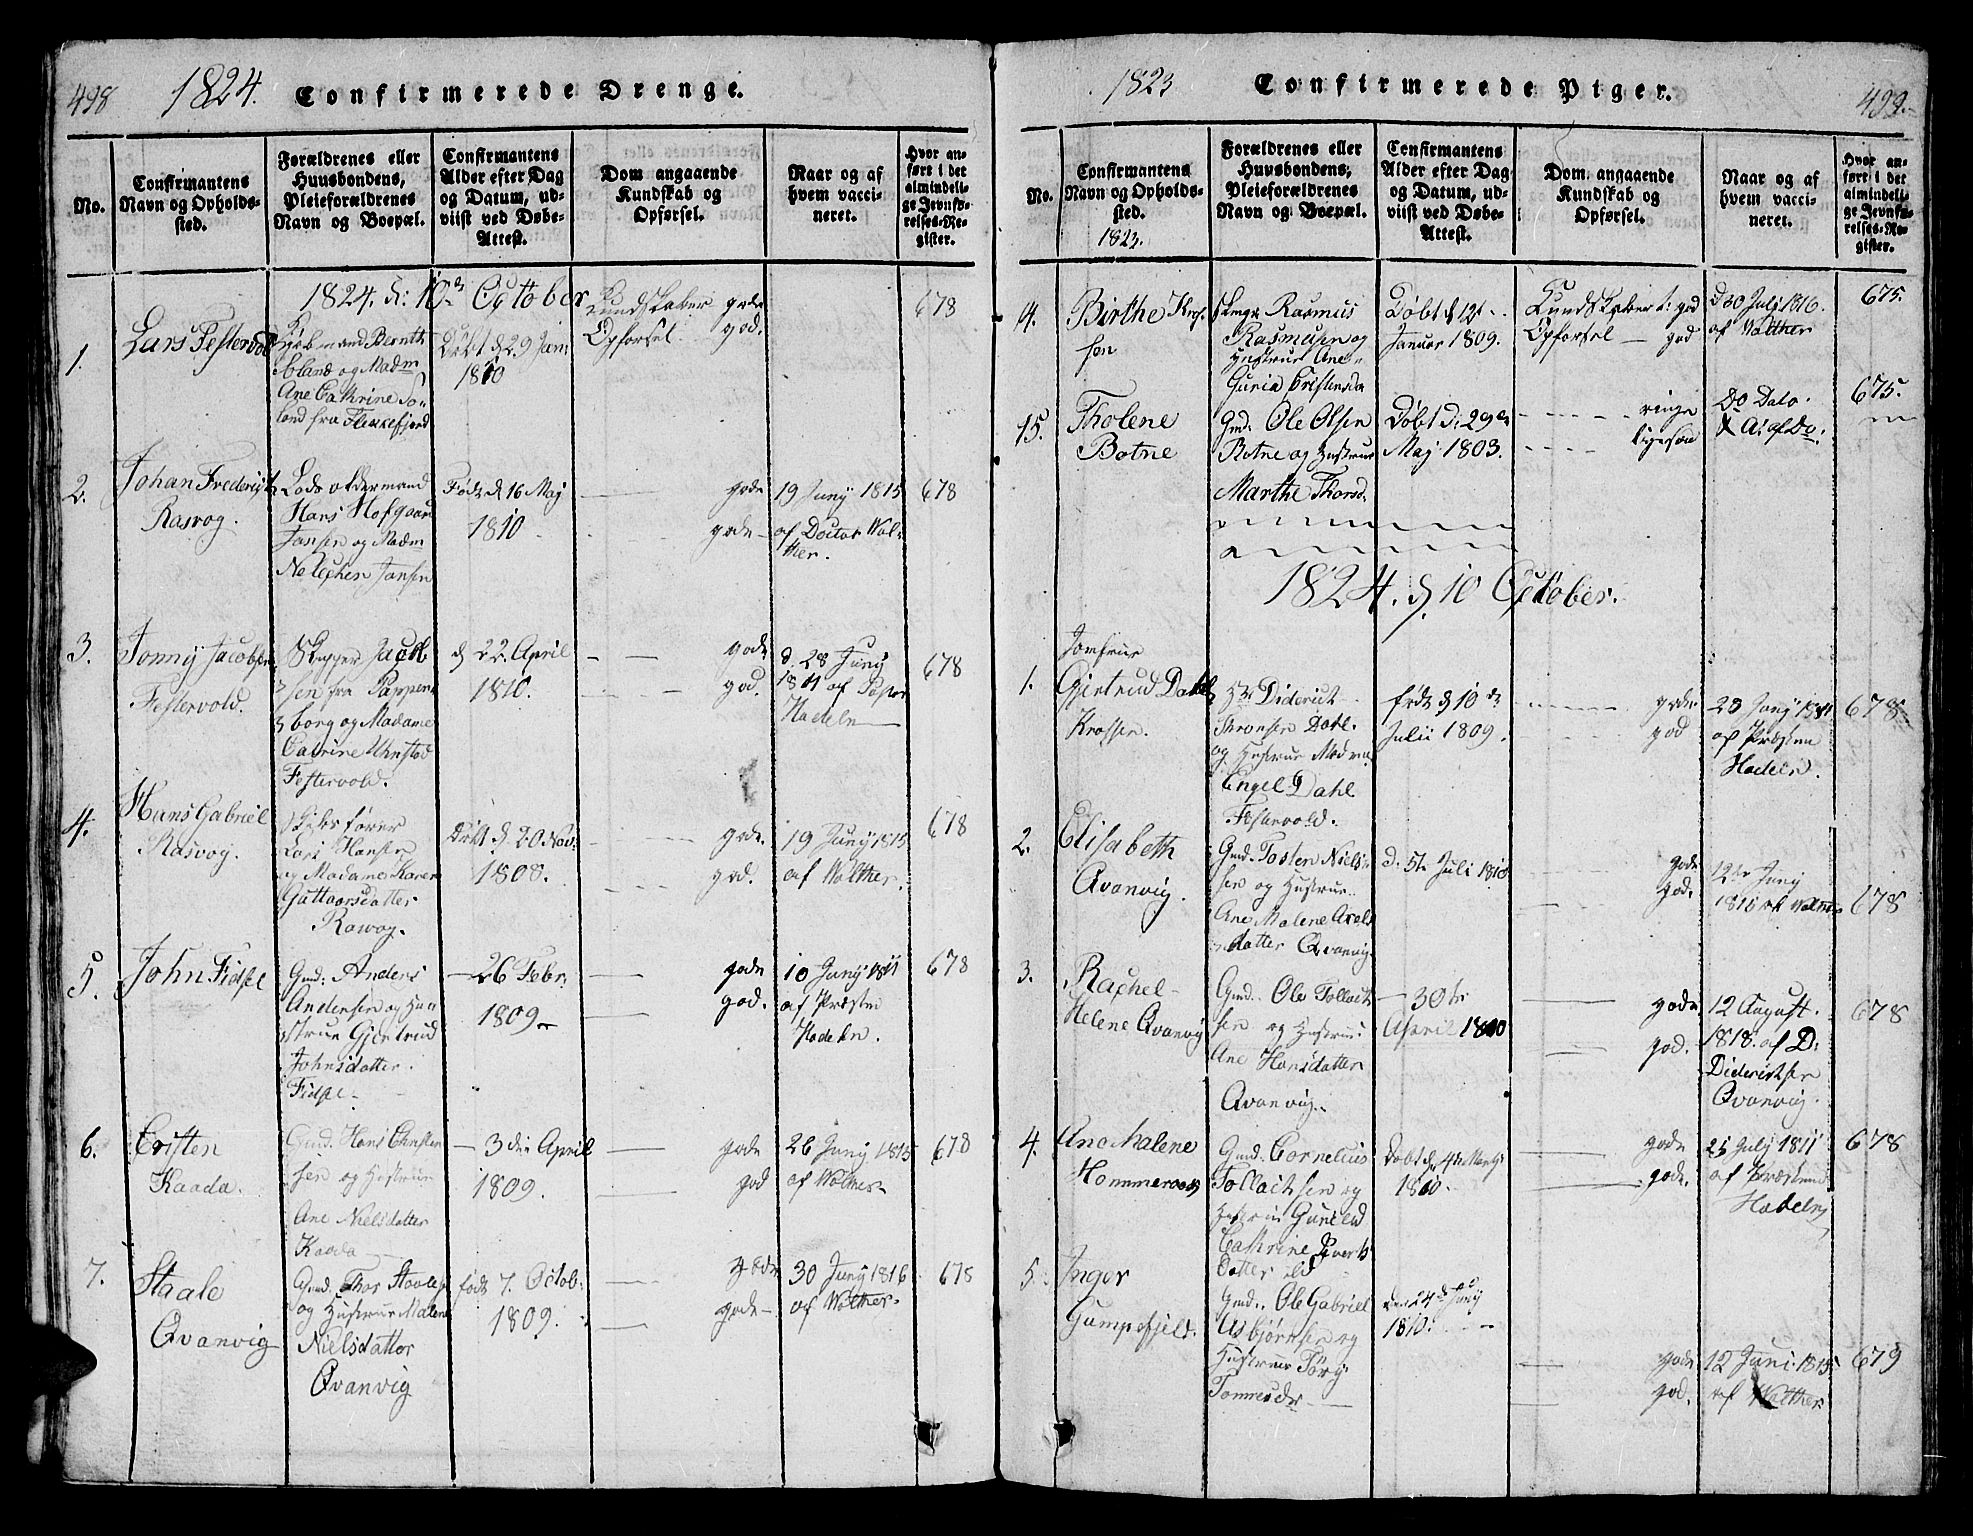 498
1824.
Confirmerede Drenge.
No.
Confirmantens
Navn og Opholds-
sted.
Forældrenes eller
Huusbondens,
Pleieforældrenes
Navn og Boepæl.
Confirmantens
Alder efter Dag
og Datum, ud-
viist ved Døbe-
Attest.
Dom angaaende
Kundskab og
Opførsel.
Naar og af
hvem vacci-
neret.
Hvor an-
ført i det
almindeli-
ge Jevnfø-
relses-Re-
gister.
1824. d: 10de October
1.
Lars Festervold
Kjøbmand Berntt
Soland og Madm
Ane Cathrine So-
land fra Flekkefjord
Døbt d 29 Juni
1810
Kundskaber gode
Opførsel god.
678
2.
Johan Frederigk
Rasvog.
Lods oldermand
Hans Hofgaard
Jansen og Madm
Jansen
Født d 16 Maj
1810
gode
gode
19 Juny 1815
af Doctor Wal-
ther.
678
3.
Jonny Jacobsen
Festervold.
Skipper Jacob
sen fra Pappen-
borg og Madame
Catrine Uhnstad
Festervold.
d 22 April
1810.
gode
god.
d. 28 Juny
1811 af Pastor
Hadeln
678
4.
Hans Gabriel
Rasvog.
Skibsfører
Lars Hansen
og Madame Karen
Guttormsdatter
Rasvog.
Døbt d. 20 Nov:
1808.
gode.
god.
19 Juny 1815
af Walther.
678
5.
John Fidsel
Gmd: Anders
Andersen og Hu-
strue Gjertrud
Johnsdatter.
Fidsel
26 Febr:
1809
gode
god.
10 Juny 1811
af Præsten
Hadeln.
678
6.
Cristen
Kaada.
Gmd. Hans Christen
sen og Hustrue
Ane Nielsdatter
Kaada
3die April
1809.
gode
god
26 Juny 1815
af Walther
678
7.
Staale
Qvanvig
Gmd. Thor Staales
og Hustrue Malene
Nielsdatter
Qvanvig
født 7. Octob:
1809.
gode
gode
30 Juny 1816
af Walther
678
1823
Confirmerede Piger.
499.
No.
Confirmantens
Navn og Opholds-
sted.
1823.
Forældrenes eller
Huusbondens,
Pleieforældrenes
Navn og Boepæl.
Confirmantens
Alder efter Dag
og Datum, ud-
viist ved Døbe-
Attest.
Dom angaaende
Kundskab og
Opførsel.
Naar og af
hvem vacci-
neret.
Hvor an-
ført i det
almindeli-
ge Jevnfø-
relses-Re-
gister.
14.
Birthe
Rasmus
Rasmusen og
Hustrue Ane
Guria Cristensda
Døbt d 12t
Januar 1809.
Kundskaber t: god
Opførsel god
d 30 July 1816.
af Walther
675.
15.
Tholene
Botne
Gmd. Ole Olsen
Botne og Hustrue
Marthe Thorsd.
Døbt d: 29de
Maj 1803.
ringe
ligesaa
Do Dato.
af Do.
675.
1824. d. 10 October.
1.
Jomfrue
Gjertrud Dahl
Krossen.
Hr. Diderict
Thronsen Dahl.
og Hustrue Madm
Engel Dahl
Festervold.
født d 10de
Julii 1809.
gode
god
23 Juny 1811
af Præsten
Hadeln.
678
2.
Elisabeth
Qvanvig.
Gmd. Tosten Niels-
sen og Hustrue
Ane Malene Axels
datter Qvanvig
d. 5te Juli 1810
gode
god.
12te Juny
678
3.
Rachel
Helene Qvanvig
Gmd. Ole Tollach
sen og Hustrue
Ane Hansdatter
Qvanvig.
30te
April 1810
gode
god.
12 August.
1818. af D:
Diderichsen
Qvanvig.
678
4.
Ane Malene
Gmd. Cornelius
Tollachsen og
Hustrue Gunild
Cathrine
Døbt d 4de Martji
1810.
gode
gode.
25 July 1811
af Præstend
Hadeln
678
5.
Inger
Gumpefjeld.
Gmd. Ole Gabriel
Asbjørnsen og
Hustrue
den 24de Juny
1810.
gode
god.
12 Juni 1815
af Walther
679